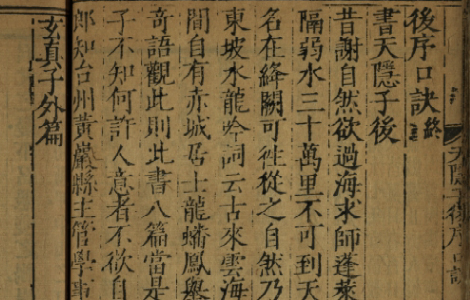 後序口訣終
書天隱子後
昔謝自然欲過海求師蓬萊
隔弱水三十萬里不可到天
名在絳闕可徃從之自然乃
東坡水龍吟詞云古來雲海
間自有赤城居士龍蟠鳳舉
奇語觀此則此書八篇當是
子不知何許人意者不欲自
郎知台州黃巖縣主管學事
玄真子外篇
天隱子後序口訣